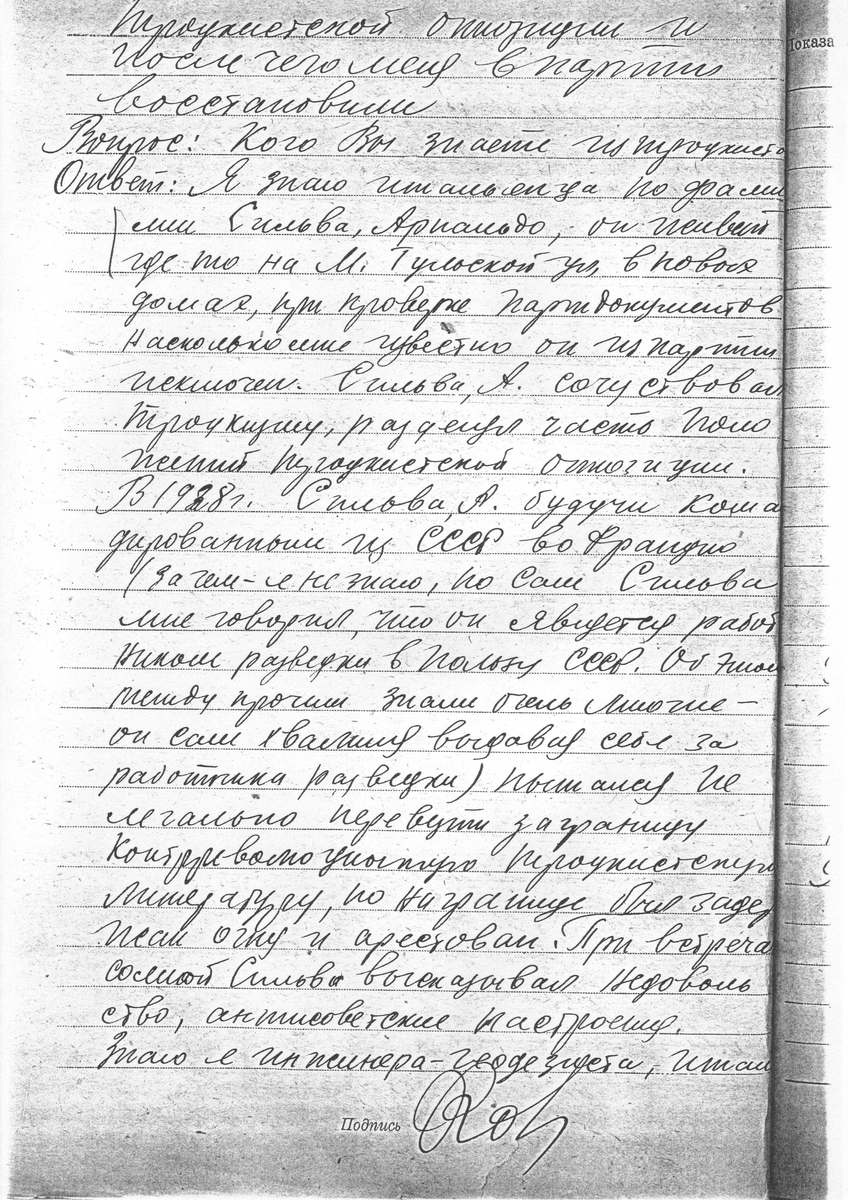 троцкистской оппозиции и
после чего меня в партии
восстановили
Вопрос: Кого Вы знаете из троцкисто
Ответ: Я знаю итальянца по фами
лии Сильва, Арнальдо, он живет
где то на М. Тульской ул, в новых
домах, при проверке партдокументов
насколько мне известно он из партии
исключен. Сильва, А. сочуствовал
троцкизму, разделял часть поло
жений троцкистской оппозиции.
В 1928 г. Сильва, А. будучи кома
дированным из СССР во Францию
(Зачем - я не знаю, но сам Сильва
мне говорил, что он является работ
ником разведки в пользу СССР. Об этом
между прочим знали очень многие -
он сам хвалился выдавая себя за
работника разведки) пытался не
легально перевезти заграницу
контрреволюционную троцкистскую
литературу, но на границе был задер
жан ОГПУ и арестован. При встреча
со мной Сильва высказывал недоволь
ство, антисоветские настроения.
Знаю я инженера-геодезиста, итал
Подпись
Показа